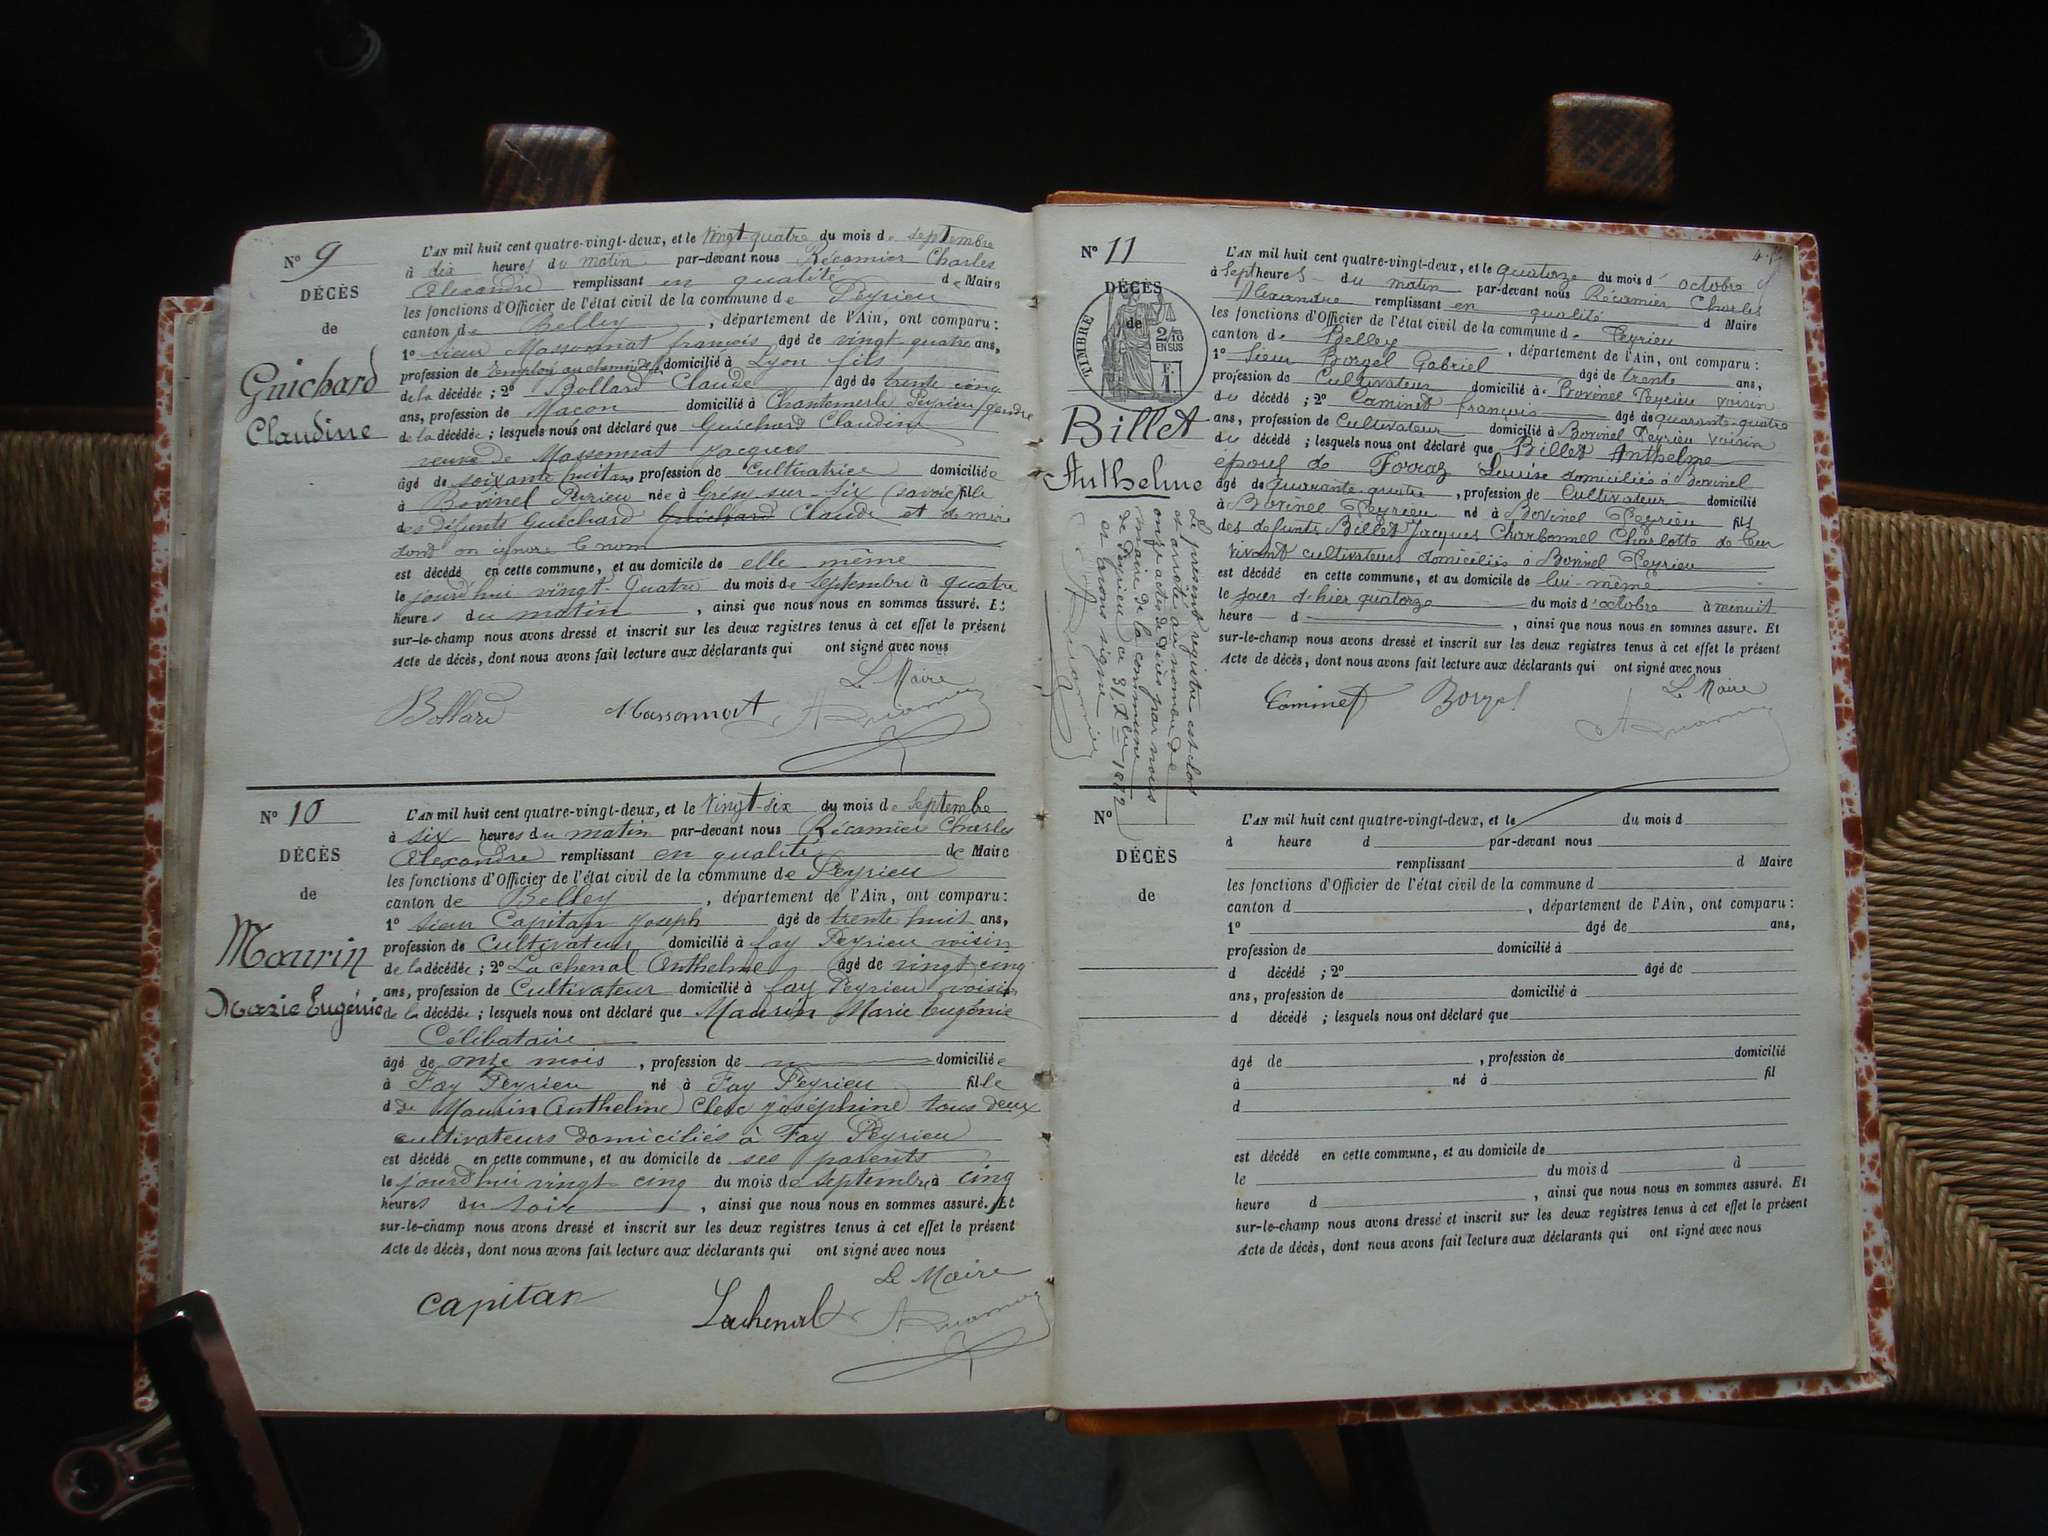 N° 9
DÉCÈS
de
Guichard
Claudine
L'AN mil huit cent quatre-vingt-deux, et le vingt-quatre du mois de septembre
à dix heures du matin par-devant nous Récamier Charles
Alexandre remplissant en qualité de Maire
les fonctions d'Officier de l'état civil de la commune de Peyrieu
canton de Belley, département de l'Ain, ont comparu:
1° Sieur Massonnat françois âgé de vingt quatre ans,
profession de employé au chemin de fer domicilié à Lyon fils
de la décédée; 2° Bollard Claude âgé de trente cinq
ans, profession de Maçon domicilié à Chantemerle Peyrieu gendre
de la décédée; lesquels nous ont déclaré que Guichard Claudine
veuve de Massonnat Jacques
âgé de soixante huit ans profession de Cultivatrice domiciliée
à Bovinel Peyrieu née à Grésy-sur-Aix (Savoie) fille
des défunts Guichard Guichard Claude et de mère
dont on ignore le nom
est décédé en cette commune, et au domicile de elle même
le jourd'hui vingt-Quatre du mois de septembre à quatre
heures du matin, ainsi que nous nous en sommes assuré. Et
sur-le-champ nous avons dressé et inscrit sur les deux registres tenus à cet effet le présent
Acte de décès, dont nous avons fait lecture aux déclarants qui ont signé avec nous
Le Maire
Bollard Massonnat
N° 10
DÉCÈS
de
Maurin
Marie Eugénie
L'AN mil huit cent quatre-vingt-deux, et le vingt-six du mois de Septembre
à six heures du matin par-devant nous Récamier Charles
Alexandre remplissant en qualité de Maire
les fonctions d'Officier de l'état civil de la commune de Peyrieu
canton de Belley, département de l'Ain, ont comparu:
1° Sieur Capitan Joseph âgé de trente huit ans,
profession de Cultivateur domicilié à fay Peyrieu voisin
de la décédée; 2° Lachenal Anthelme âgé de vingt cinq
ans, profession de Cultivateur domicilié à fay Peyrieu voisin
de la décédée; lesquels nous ont déclaré que Maurin Marie Eugénie
Célibataire
âgé de onze mois, profession de domiciliée
à Fay Peyrieu né à Fay Peyrieu fille
d de Maurin Anthelme Clerc Joséphine tous deux
cultivateurs domiciliés à Fay Peyrieu
est décédé en cette commune, et au domicile de ses parents
le jourd'hui vingt cinq du mois de septembre à cinq
heures du soir, ainsi que nous nous en sommes assuré. Et
sur-le-champ nous avons dressé et inscrit sur les deux registres tenus à cet effet le présent
Acte de décès, dont nous avons fait lecture aux déclarants qui ont signé avec nous
Le Maire
Capitan Lachenal
N° 11
DÉCÈS
de
TIMBRE
2/10
EN SUS
Billet
Anthelme
L'AN mil huit cent quatre-vingt-deux, et le quatorze du mois d'octobre
à sept heures du matin par-devant nous Récamier Charles
Alexandre remplissant en qualité d Maire
les fonctions d'Officier de l'état civil de la commune de Peyrieu
canton de Belley, département de l'Ain, ont comparu:
1° Sieur Borgel Gabriel âgé de trente ans,
profession de Cultivateur domicilié à Bovinel Peyrieu voisin
du décédé; 2° Caminet françois âgé de quarante-quatre
ans, profession de Cultivateur domicilié à Bovinel Peyrieu voisin
du décédé; lesquels nous ont déclaré que Billet Anthelme
époux de Forraz Louise domiciliés à Bovinel
âgé de quarante-quatre, profession de Cultivateur domicilié
à Bovinel Peyrieu né à Bovinel Peyrieu fils
des défunts Billet Jacques Charbonnel Charlotte de leur
vivant cultivateurs domiciliés à Bovinel Peyrieu
est décédé en cette commune, et au domicile de lui-même
le jour d'hier quatorze du mois d'octobre à menuit
heure d, ainsi que nous nous en sommes assuré. Et
sur-le-champ nous avons dressé et inscrit sur les deux registres tenus à cet effet le présent
Acte de décès, dont nous avons fait lecture aux déclarants qui ont signé avec nous
Le Maire
Caminet Borgel
Le présent registre est clos
et arrêté au nombre de
onze actes de décès par nous
maire de la commune
de Peyrieu ce 31 Xbre 1882
et avons signé
N°
DÉCÈS
de
L'AN mil huit cent quatre-vingt-deux, et le du mois d
à heure d par-devant nous
remplissant d Maire
les fonctions d'Officier de l'état civil de la commune d
canton d, département de l'Ain, ont comparu:
1° âgé de ans,
profession de domicilié à
d décédé; 2° âgé de
ans, profession de domicilié à
d décédé; lesquels nous ont déclaré que
âgé de, profession de domicilié
à né à fil
d
est décédé en cette commune, et au domicile de
le du mois d à
heure d, ainsi que nous nous en sommes assuré. Et
sur-le-champ nous avons dressé et inscrit sur les deux registres tenus à cet effet le présent
Acte de décès, dont nous avons fait lecture aux déclarants qui ont signé avec nous